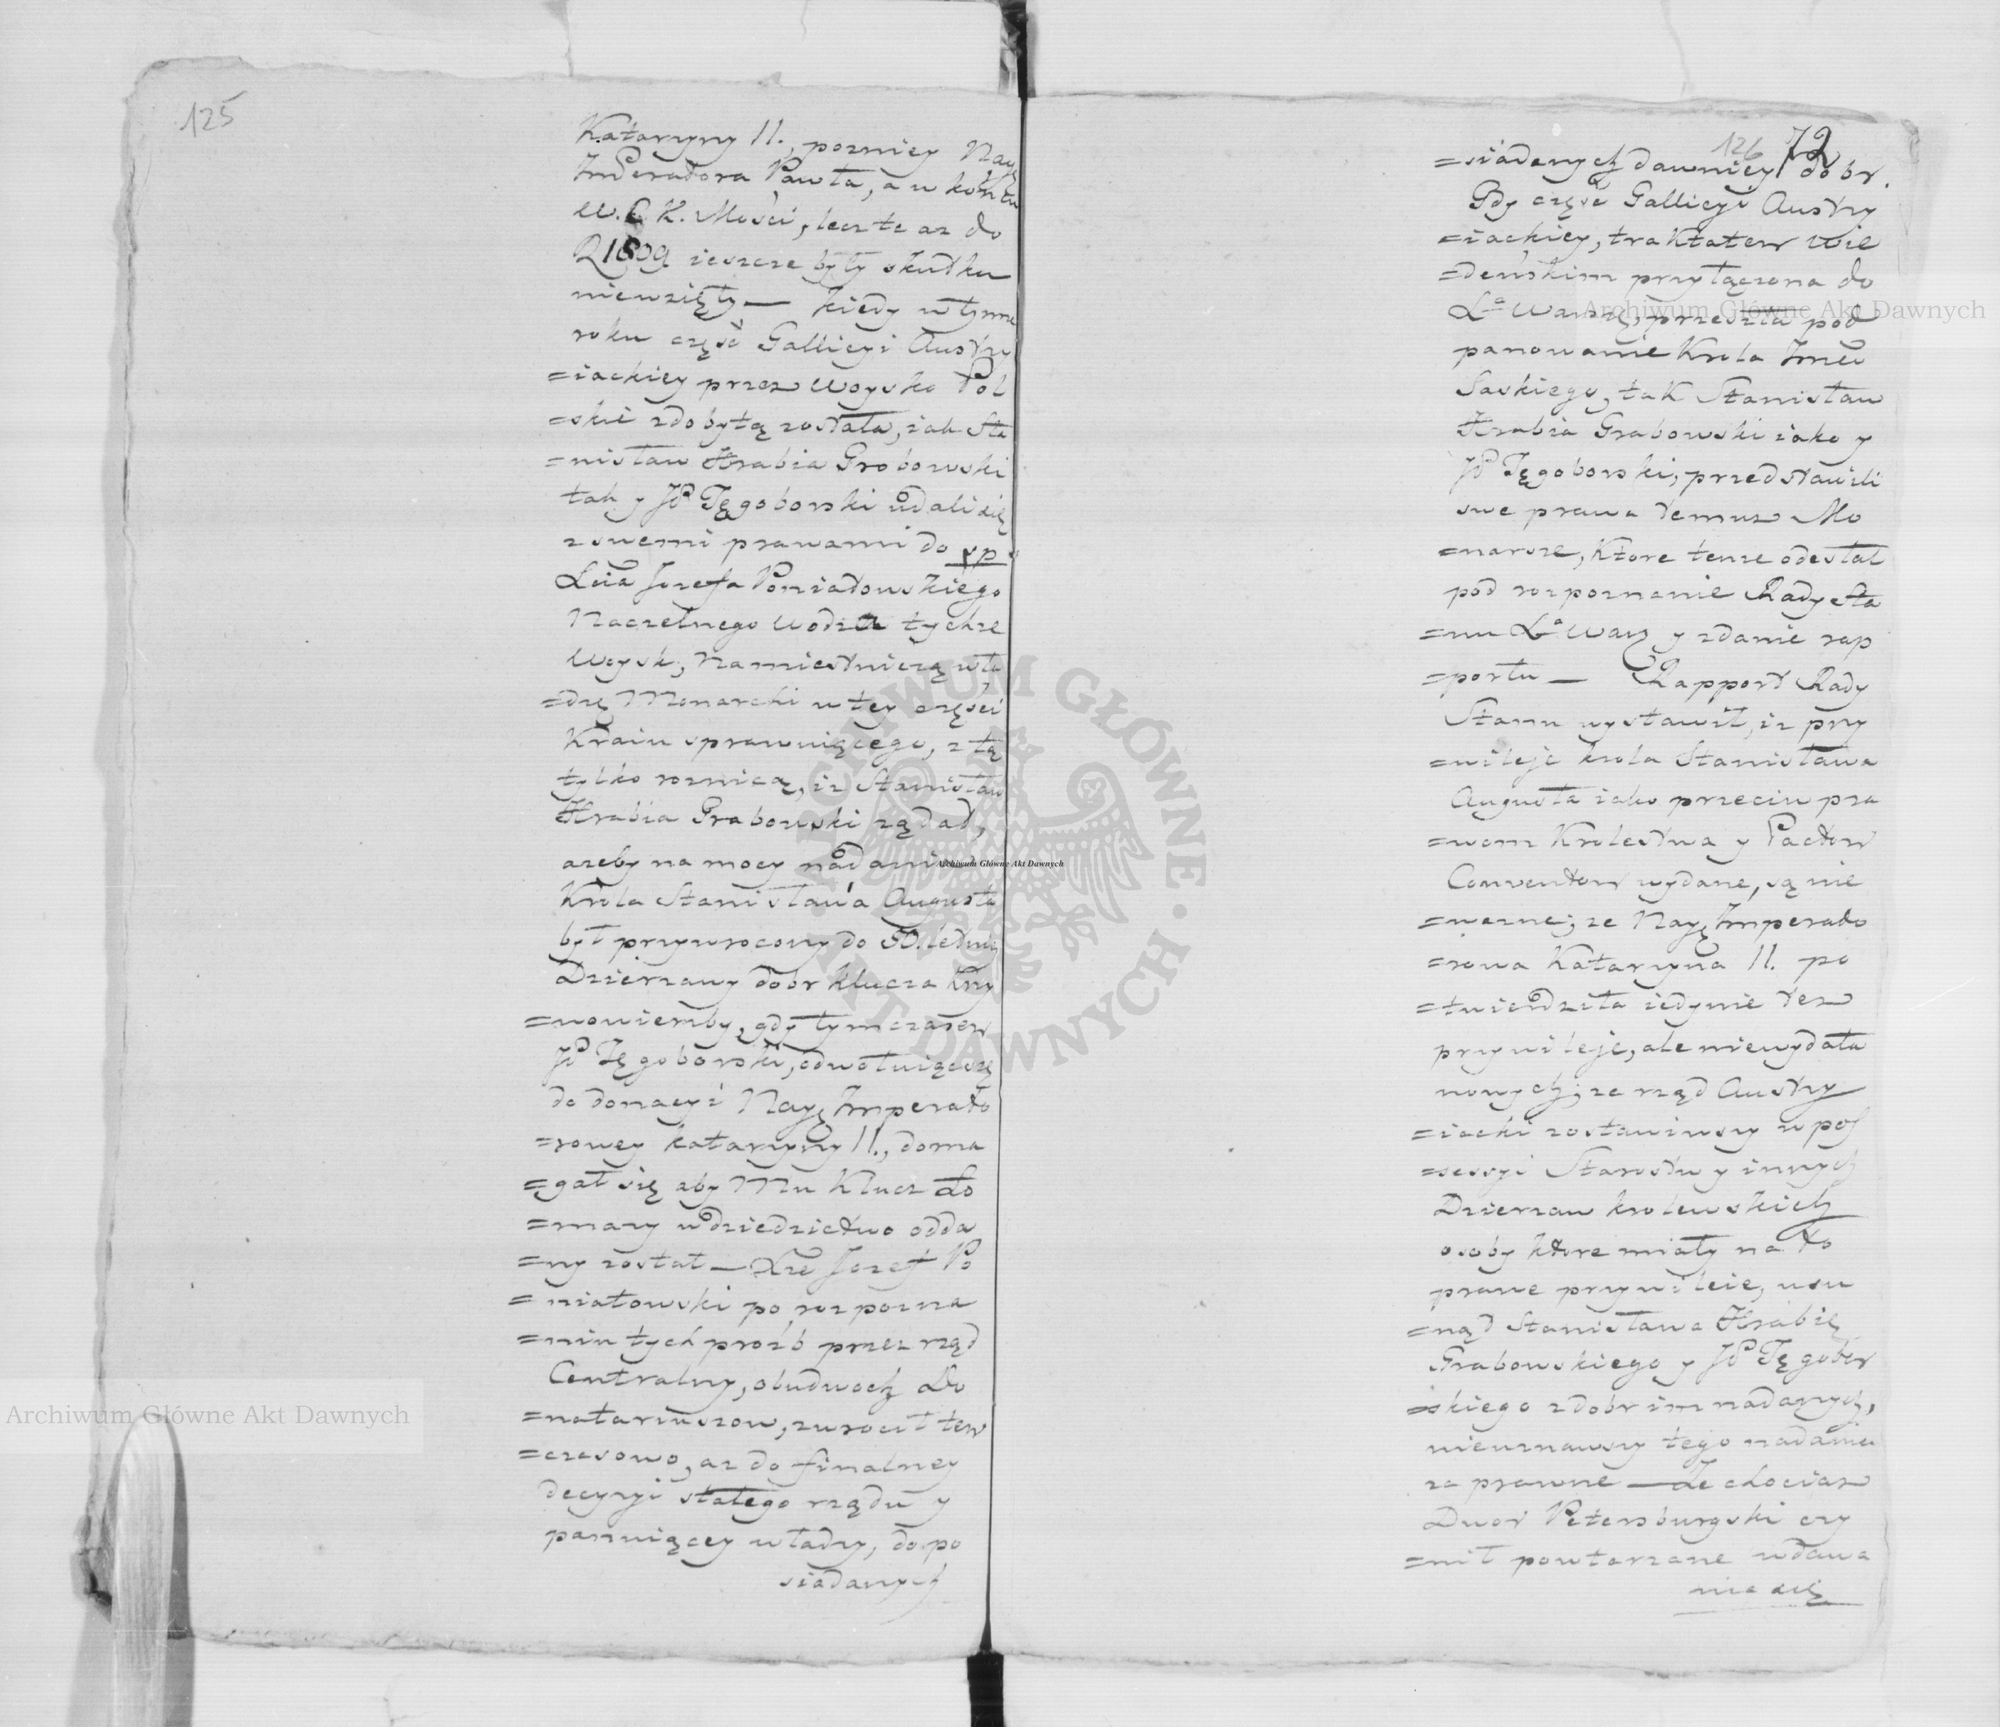 125
Katarzyny II., pozniey Nayj
Imperadora Pawła, a w końcu
W. C. K. Mości, lecz te aż do
R 1809 ieszcze były skutku
niewzięły — kiedy w tymże
roku część Gallicyi Austry
=iackiey przez woysko Pol
=skie zdobytą została, iak Sta
=nisław Hrabia Grabowski
tak y JP Tęgoborski udali się
z swemi prawami do sp
Xcia Jozefa Poniatowskiego
Naczelnego wodza tychże
Woysk, namiestniczą wła
=dzę Monarchi w tey części
Kraiu sprawuiącego, z tą
tylko roznicą, iż Stanisław
Hrabia Grabowski żądał,
ażeby na mocy nadania
Króla Stanisława Augusta
był przywrocony do 50. letniej
Dzierzawy dobr klucza Krzy
=nowierzby, gdy tymczasem
JP Tęgoborski, odwołuiąc się
do donacyi Nayj Imperato
=rowey Katarzyny II., doma
=gał się aby Mu Klucz Ło
=mazy w dziedzictwo odda
=ny został — Xże Jozef Po
=niatowski po rozpozna
=niu tych proźb przez rząd
Centralny, obudwoch Do
=nataryuszow, zwrocił tem
=czasowo, aż do finalney
decyzyi stałego rządu y
panuiącey władzy, do po
siadanych
126 72
=siadanych dawniey dobr.
Gdy część Gallicyi Austry
=iackiey, traktatem Wie
=deńskim przyłączona do
Xa Warsz, przeszła pod
panowanie Krola Jmci
Saskiego, tak Stanisław
Hrabia Grabowski iako y
JP Tęgoborski, przedstawili
swe prawa temuż Mo
=narsze, które tenże odesłał
pod rozpoznanie Rady Sta
=nu Xa Warz y zdanie rap
=portu — Rapport Rady
Stanu wystawił, iż przy
=wileje krola Stanisława
Augusta iako przeciw pra
=wom Krolestwa y Pactom
Conventom wydane, są nie
=ważne; że Nayj Imperato
=rowa Katarzyna II. po
=twierdziła iedynie też
przywileje, ale niewydała
nowych; że rząd Austry
=iacki zostawiwszy w pos
=sessyi Starostw y innych
Dzierzaw krolewskich
osoby które miały na to
prawe przywileie, usu
=nął Stanisława Hrabię
Grabowskiego y JP Tęgobor
=skiego z dobr im nadanych,
nieuznawszy tego nadania
za prawne — Że chociaż
Dwor Petersburgski czy
=nił powtarzane wdawa
nia się
Archiwum Główne Akt Dawnych
Archiwum Główne Akt Dawnych
Archiwum Główne Akt Dawnych
ARCHIWUM GŁÓWNE · AKT DAWNYCH ·